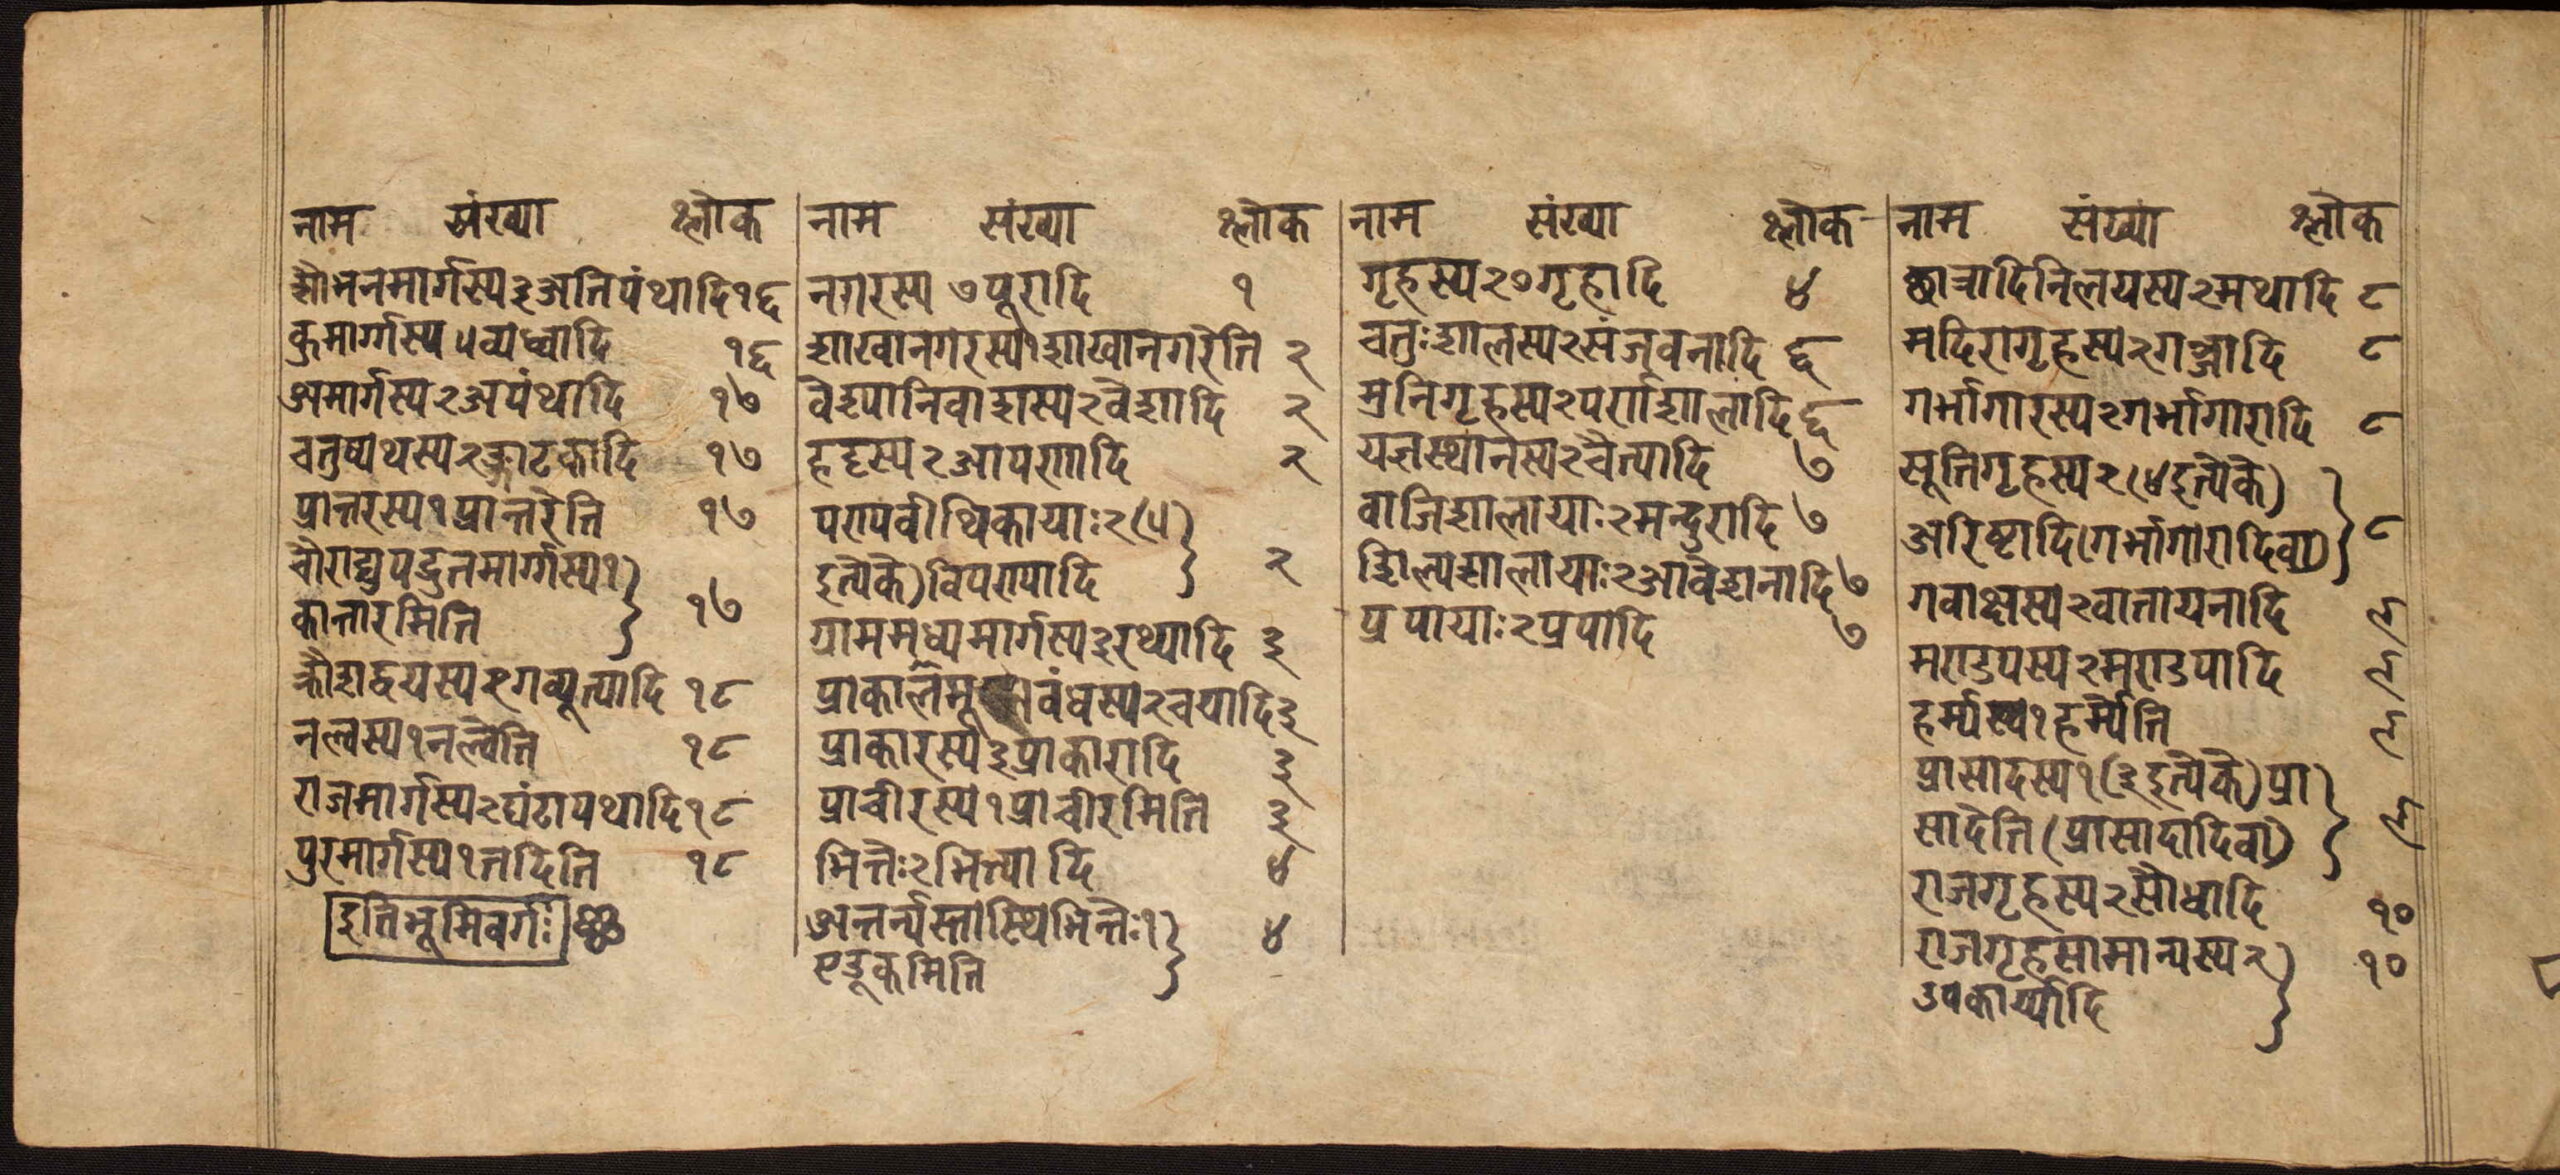 नाम संख्या श्लोक
शोभनमार्गस्य ३ अतिपंथादि १६
कुमार्ग्गस्य ५ व्यध्वादि १६
अमार्गस्य २ अपंथादि १७
चतुष्पथस्य २ शृङ्गाटकादि १७
प्रान्तरस्य १ प्रान्तरेति १७
चौराद्युपद्रुतमार्ग्गस्य १
कान्तारमिति १७
क्रोशद्वयस्य २ गव्यूत्यादि १८
नल्वस्य १ नल्वेति १८
राजमार्गस्य २ घंटापथादि १८
पुरमार्गस्य १ तदिति १८
इति भूमिवर्गः
नाम संख्या श्लोक
नगरस्य ७ पूरादि १
शाखानगरस्य १ शाखानगरेति २
वेश्यानिवाशस्य २ वेशादि २
हट्टस्य २ आपणादि २
पण्यवीथिकायाः २ (५
इत्येके) विपण्यादि २
ग्राममध्यमार्गस्य ३ रथ्यादि ३
प्राकाल वंधस्य २ चयादि ३
प्राकारस्य ३ प्राकारादि ३
प्राचीरस्य १ प्राचीरमिति ३
भित्तेः २ भित्त्यादि ४
अन्तर्न्यस्तास्थिभित्तेः १
एडूकमिति ४
नाम संख्या श्लोक
गृहस्य २० गृहादि ४
चतुःशालस्य २ संजवनादि ६
मुनिगृहस्य २ पर्णशालादि ६
यज्ञस्थानस्य २ चैत्यादि ७
वाजिशालायाः २ मन्दुरादि ७
शिल्पशालायाः २ आवेशनादि ७
प्रपायाः २ प्रपादि ७
नाम संख्या श्लोक
छात्रादिनिलयस्य २ मथादि ८
मदिरागृहस्य २ गञ्जादि ८
गर्भागारस्य २ गर्भागारादि ८
सूतिगृहस्य २ (४ इत्येके)
अरिष्टादि (गर्भागारादि वा) ८
गवाक्षस्य २ वातायनादि ९
मण्डपस्य २ मण्डपादि ९
हर्म्यस्य १ हर्म्येति ९
प्रासादस्य १ (३ इत्येके) प्रा
सादेति (प्रासादादि वा) ९
राजगृहस्य २ सौधादि १०
राजगृहसामान्यस्य २ १०
उपकार्य्यादि